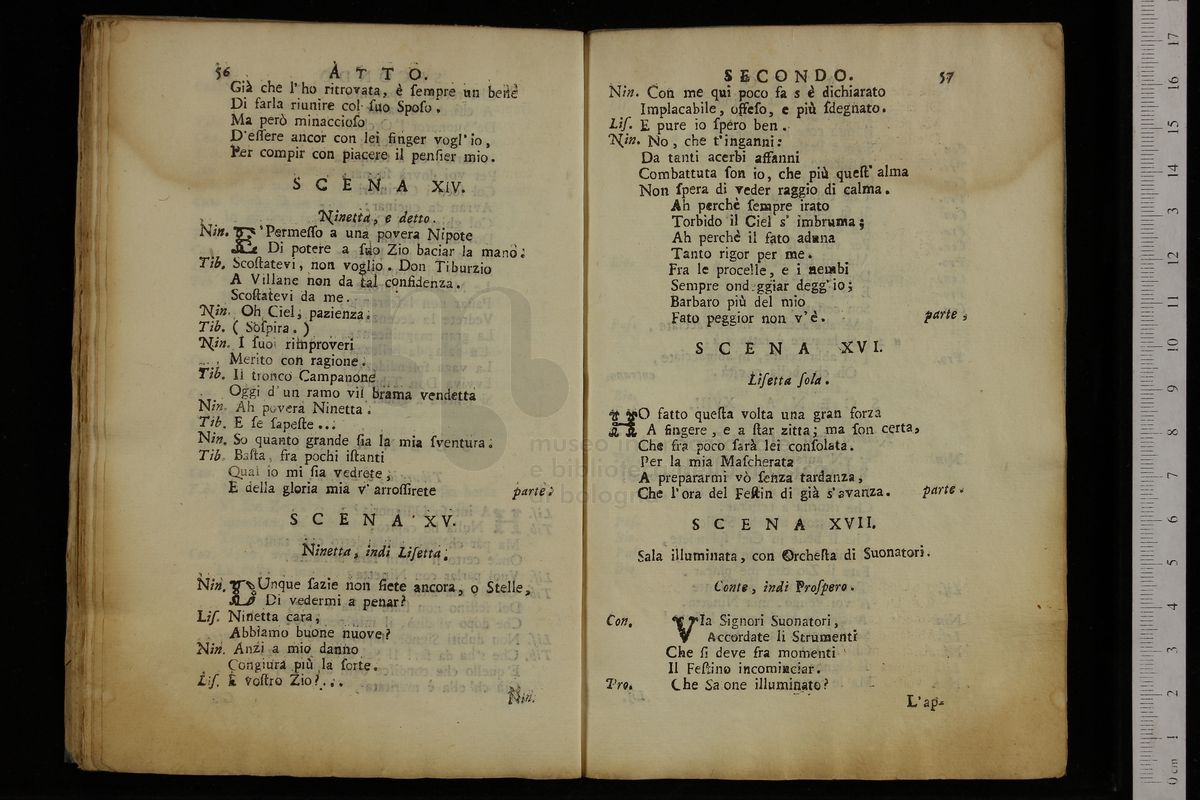 56 ATTO.
Già che l'ho ritrovata, è ſempre un benè
Di farla riunire col ſuo Spoſo.
Ma però minaccioſo
D'eſſere ancor con lei finger vogl'io,
Per compir con piacere il penſier mio.
SCENA XIV.
Ninetta, e detto.
Nin. E'Permeſſo a una povera Nipote
Di potere a ſuo Zio baciar la mano?
Tib. Scoſtatevi, non voglio. Don Tiburzio
A Villane non da tal confidenza.
Scoſtatevi da me.
Nin. Oh Ciel, pazienza.
Tib. (Soſpira.)
Nin. I ſuoi rimproveri
Merito con ragione.
Tib. Il tronco Campanone
Oggi d'un ramo vil brama vendetta
Nin. Ah povera Ninetta.
Tib. E ſe ſapeſte...
Nin. So quanto grande ſia la mia ſventura.
Tib. Baſta, fra pochi iſtanti
Qual io mi ſia vedrete,
E della gloria mia v'arroſſirete parte.
SCENA XV.
Ninetta, indi Liſetta.
Nin. DUnque ſazie non ſiete ancora, o Stelle,
Di vedermi a penar?
Liſ. Ninetta cara,
Abbiamo buone nuove?
Nin. Anzi a mio danno
Congiura più la ſorte.
Liſ. E voſtro Zio?...
Nin.
SECONDO. 57
Nin. Con me qui poco fa s è dichiarato
Implacabile, offeſo, e più ſdegnato.
Liſ. E pure io ſpero ben.
Nin. No, che t'inganni:
Da tanti acerbi affanni
Combattuta ſon io, che più queſt'alma
Non ſpera di veder raggio di calma.
Ah perchè ſempre irato
Torbido il Ciel s'imbruma;
Ah perchè il fato aduna
Tanto rigor per me.
Fra le procelle, e i nembi
Sempre ondeggiar degg'io;
Barbaro più del mio
Fato peggior non v'è. parte,
SCENA XVI.
Liſetta ſola.
HO fatto queſta volta una gran forza
A fingere, e a ſtar zitta; ma ſon certa,
Che fra poco ſarà lei conſolata.
Per la mia Maſcherata
A prepararmi vò ſenza tardanza,
Che l'ora del Feſtin di già s'avanza. parte.
SCENA XVII.
Sala illuminata, con Orcheſta di Suonatori.
Conte, indi Proſpero.
Con. VIa Signori Suonatori,
Accordate li Strumenti
Che ſi deve fra momenti
Il Feſtino incominciar.
Pro. Che Sa one illuminato?
L'ap-
museo in
e biblio
di bolog
0 cm 1 2 3 4 5 6 7 8 9 10 11 12 13 14 15 16 17